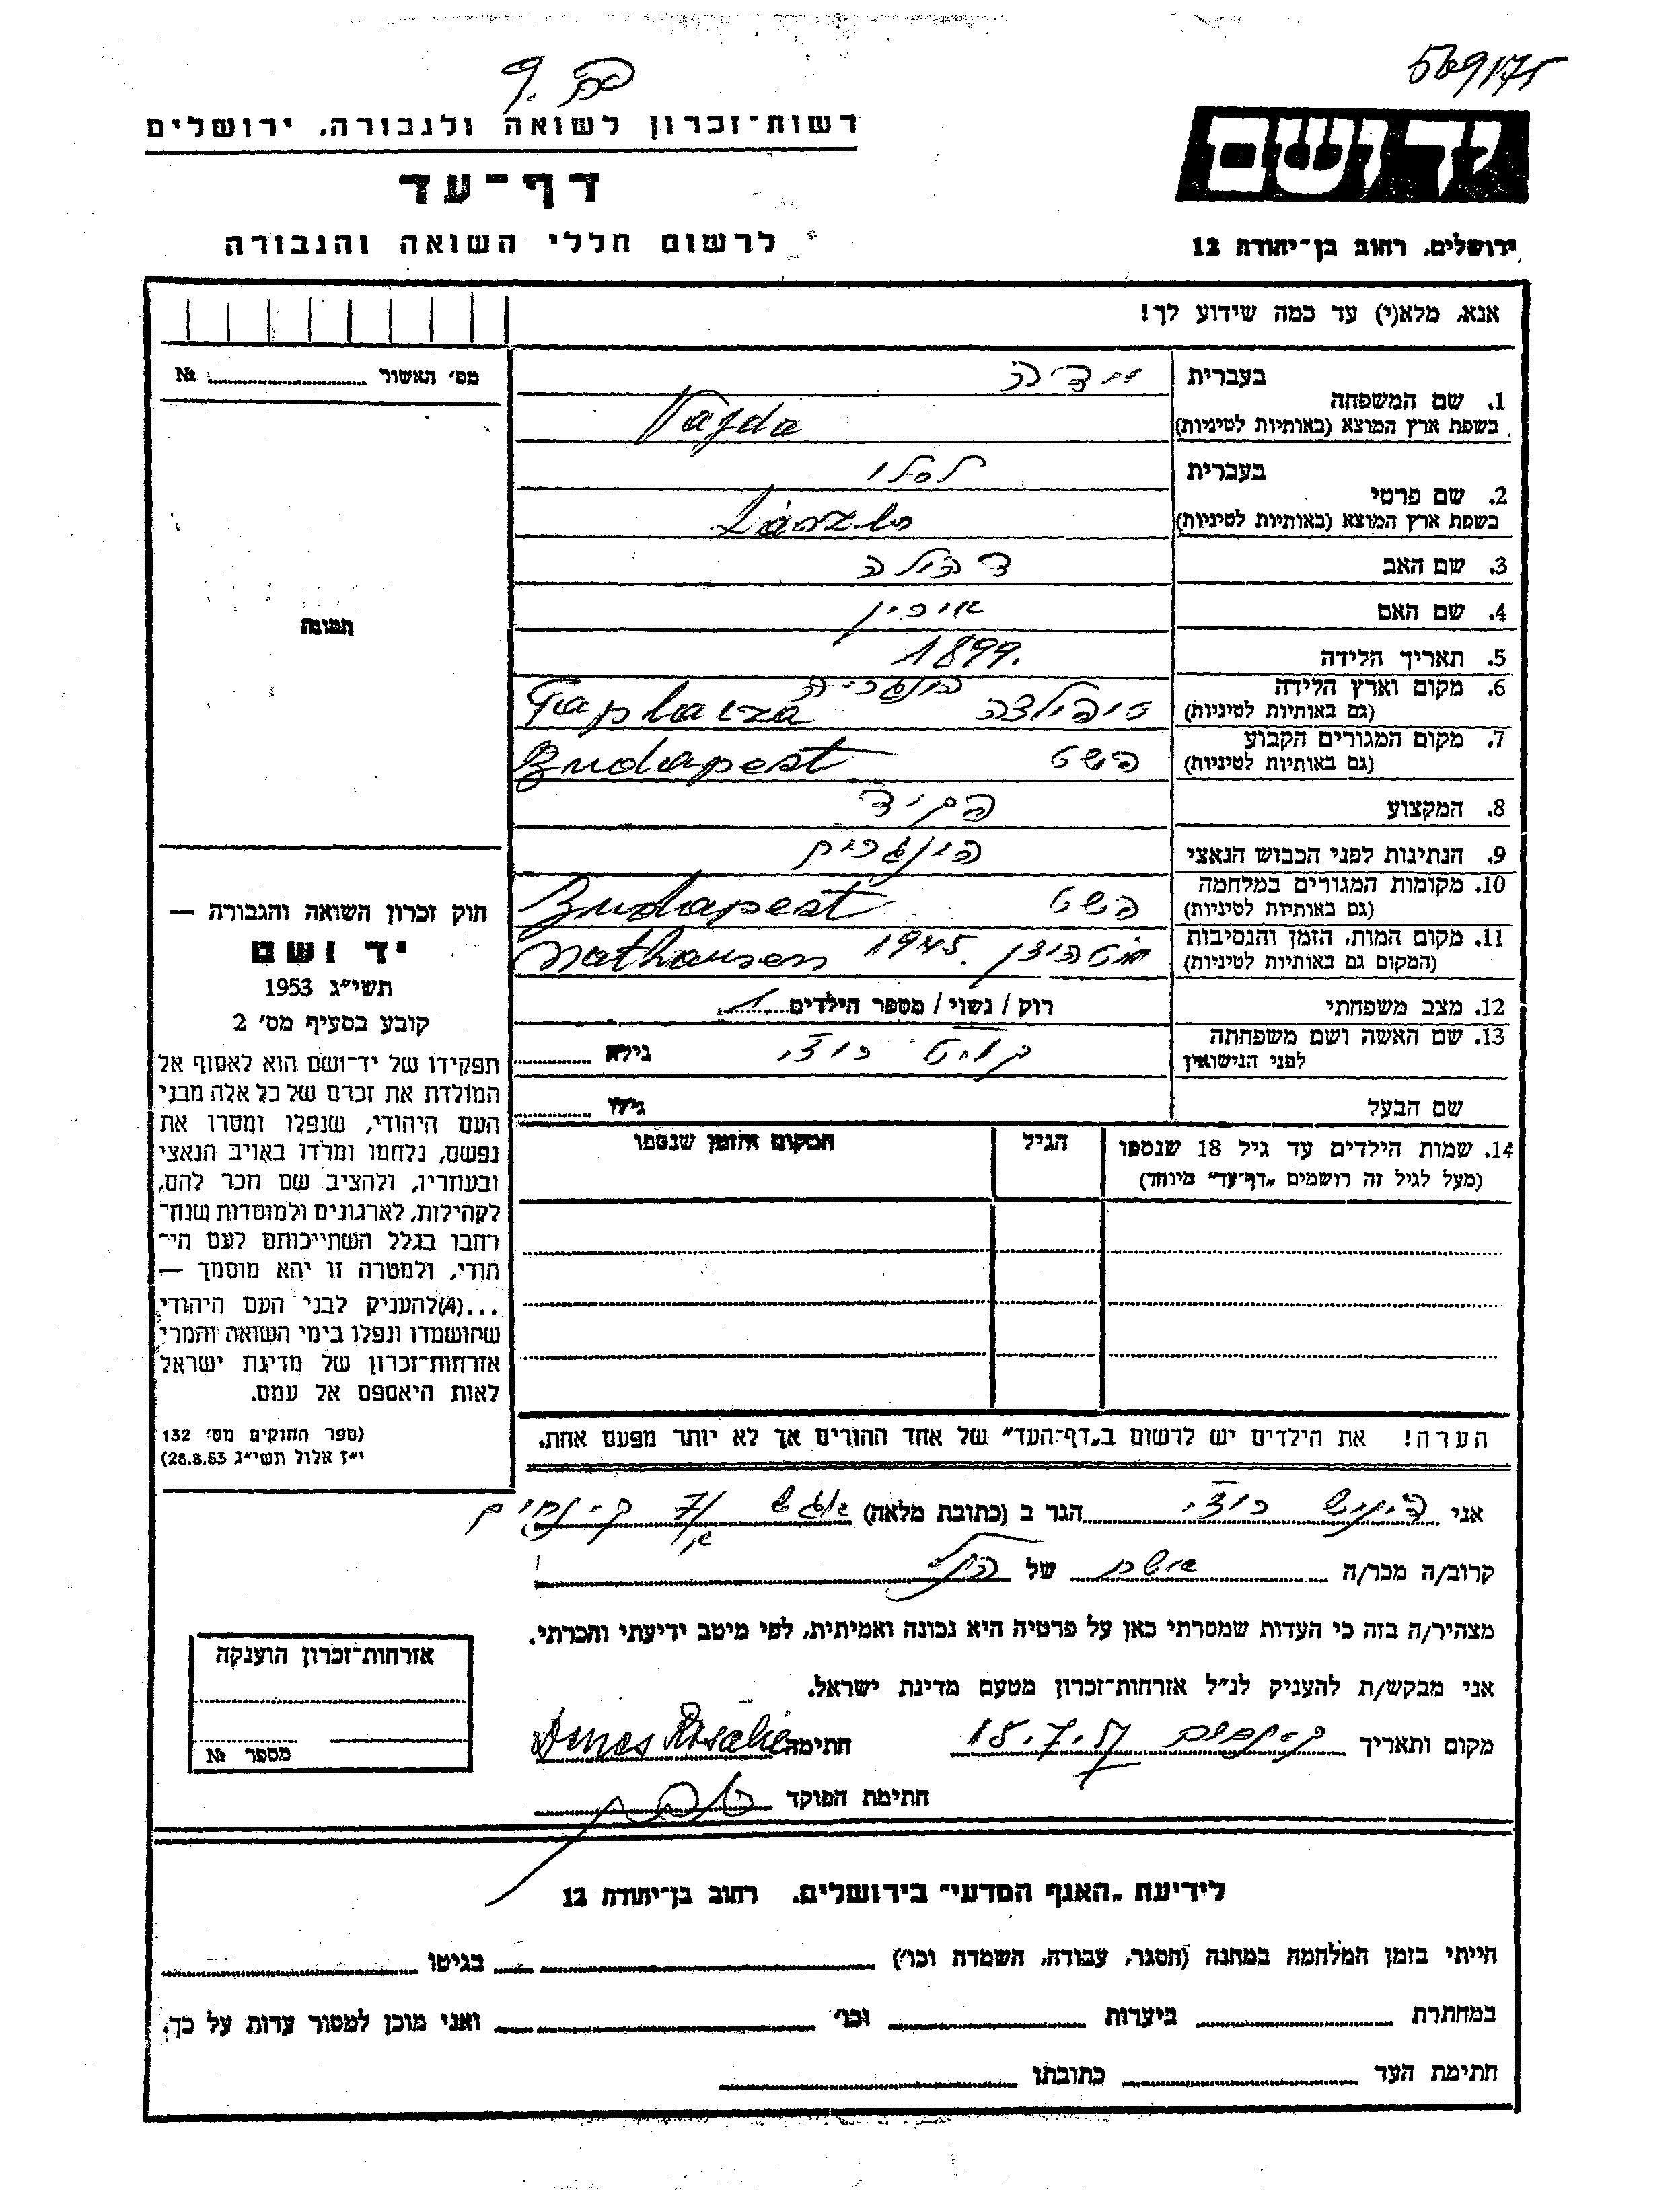 569/175
רשות־זכרון לשואה ולגבורה, ירושלים
יד ושם
דף־עד
לרשום חללי השואה והגבורה
ירושלים, רחוב בן־יהודה 12
אנא, מלא(י) עד כמה שידוע לך!
מס׳ האשור № 
תמונה
1. שם המשפחה
בעברית
בשפת ארץ המוצא (באותיות לטיניות) Vajda
2. שם פרטי
בעברית לסלו
בשפת ארץ המוצא (באותיות לטיניות) László
3. שם האב
4. שם האם
5. תאריך הלידה 1899.
6. מקום וארץ הלידה הונגריה
(גם באותיות לטיניות) טיפולצה Taplocza
7. מקום המגורים הקבוע
(גם באותיות לטיניות) פשט Budapest
8. המקצוע פקיד
9. הנתינות לפני הכבוש הנאצי הונגרית
10. מקומות המגורים במלחמה
(גם באותיות לטיניות) פשט Budapest
11. מקום המות, הזמן והנסיבות
(המקום גם באותיות לטיניות) מטהוזן 1945. Mathausen
12. מצב משפחתי רוק / נשוי / מספר הילדים 1
13. שם האשה ושם משפחתה
לפני הנישואין רוזי גילה
שם הבעל גילו
14. שמות הילדים עד גיל 18 שנספו
(מעל לגיל זה רושמים „דף־עד״ מיוחד)
הגיל
המקום והזמן שנספו
הערה! את הילדים יש לרשום ב„דף־העד״ של אחד ההורים אך לא יותר מפעם אחת.
חוק זכרון השואה והגבורה —
יד ושם
תשי״ג 1953
קובע בסעיף מס׳ 2
תפקידו של יד־ושם הוא לאסוף אל
המולדת את זכרם של כל אלה מבני
העם היהודי, שנפלו ומסרו את
נפשם, נלחמו ומרדו באויב הנאצי
ובעוזריו, ולהציב שם וזכר להם,
לקהילות, לארגונים ולמוסדות שנח־
רבו בגלל השתייכותם לעם הי־
הודי, ולמטרה זו יהא מוסמך —
...(4)להעניק לבני העם היהודי
שהושמדו ונפלו בימי השואה והמרי
אזרחות־זכרון של מדינת ישראל
לאות היאספם אל עמם.
(ספר החוקים מס׳ 132
י״ז אלול תשי״ג 28.8.53)
אני דינש רוזי הגר ב (כתובת מלאה)
קרוב/ה מכר/ה אשת של הנ״ל
מצהיר/ה בזה כי העדות שמסרתי כאן על פרטיה היא נכונה ואמיתית, לפי מיטב ידיעתי והכרתי.
אני מבקש/ת להעניק לנ״ל אזרחות־זכרון מטעם מדינת ישראל.
מקום ותאריך 15.7.57 חתימה Denes Rosalie
חתימת הפוקד
אזרחות־זכרון הוענקה
מספר №
לידיעת „האגף המדעי״ בירושלים, רחוב בן־יהודה 12
הייתי בזמן המלחמה במחנה (הסגר, עבודה, השמדה וכו׳) בגיטו
במחתרת ביערות וכו׳ ואני מוכן למסור עדות על כך.
חתימת העד כתובתו